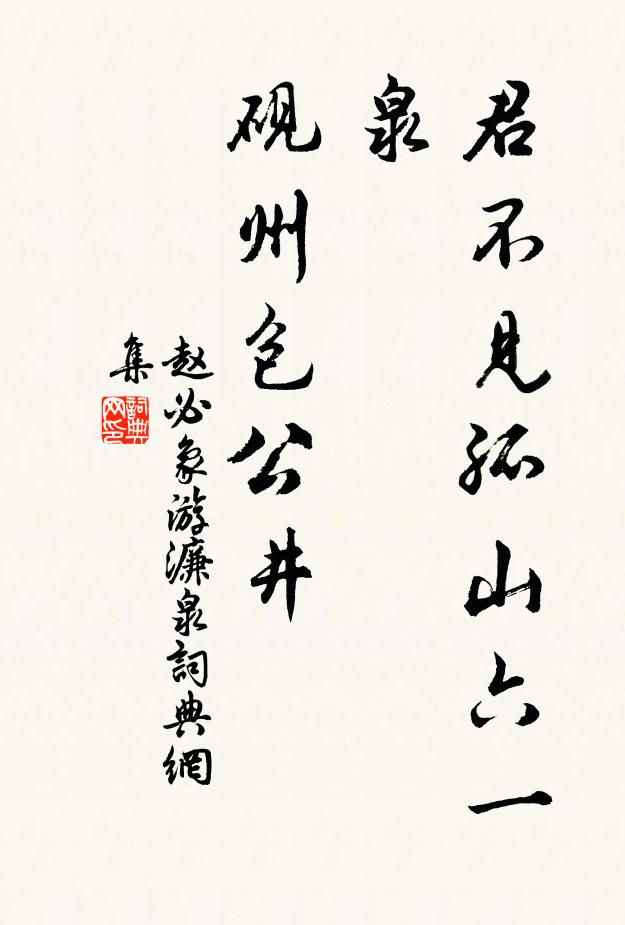 君不见孤山六一
泉
砚州包公井
赵必象游濂泉詞典網
集
詞典
网印